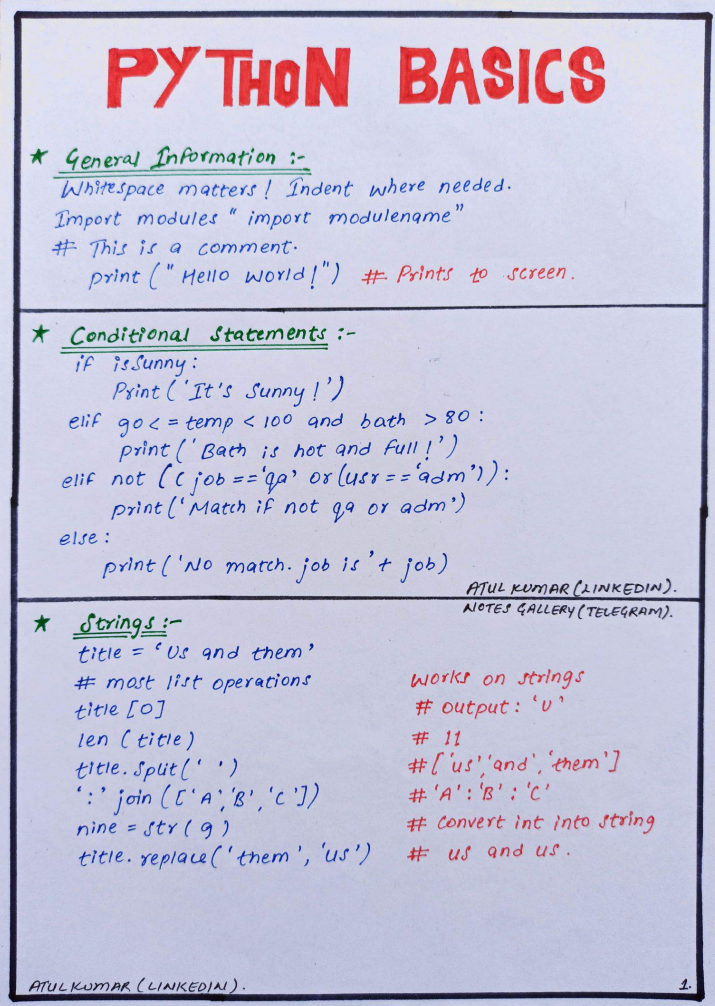 PYTHON BASICS
★ General Information :-
Whitespace matters! Indent where needed.
Import modules " import modulename"
# This is a comment.
print (" Hello World!") # Prints to screen.
★ Conditional Statements :-
if isSunny:
Print('It's Sunny!')
elif 90 < = temp < 100 and bath > 80 :
print('Bath is hot and full!')
elif not ((job =='qa' or (usr =='adm')):
print('Match if not qa or adm')
else :
print('No match. job is '+ job)
ATUL KUMAR (LINKEDIN).
NOTES GALLERY (TELEGRAM).
★ Strings :-
title = 'Us and them'
# most list operations works on strings
title [0] # output : 'U'
len (title) # 11
title. Split(' ') # ['us','and','them']
':' join (['A','B','C']) # 'A':'B':'C'
nine = str(9) # convert int into string
title. replace('them', 'us') # us and us.
ATUL KUMAR (LINKEDIN).
1.